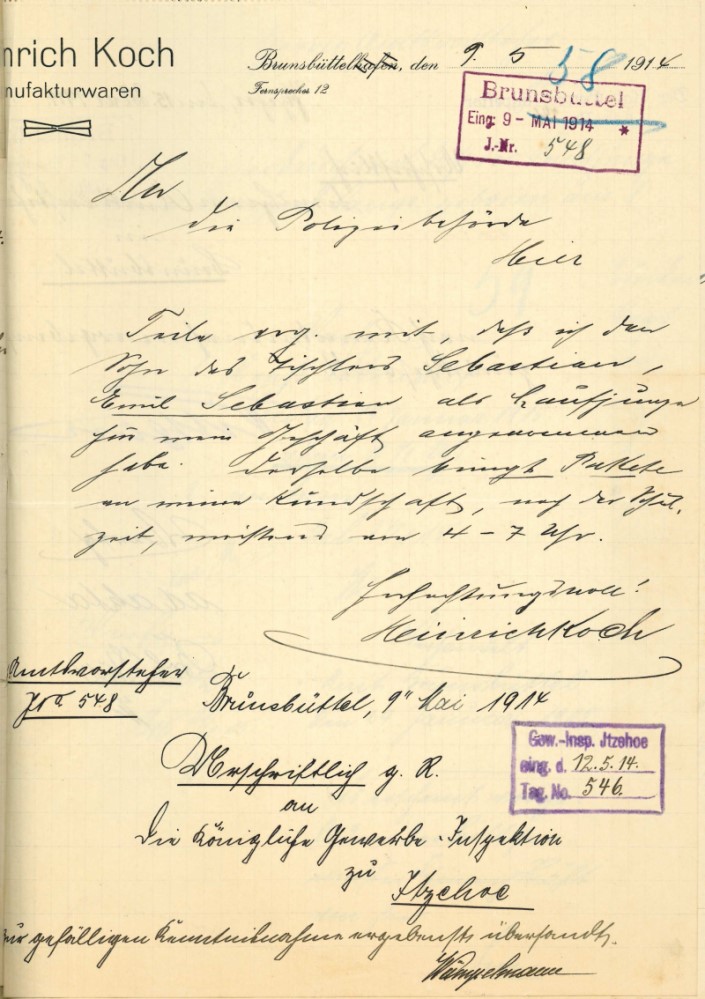 nrich Koch
nufakturwaren
Brunsbüttelhafen, den 9. 5 1914
58
Fernsprecher 12
Brunsbüttel
Eing. 9 - MAI 1914 *
J.-Nr. 548
An
die Polizeibehörde
Hier
Teile erg. mit, daß ich den
Sohn des Tischlers Sebastian,
Emil Sebastian als Laufjunge
für mein Geschäft angenommen
habe. Derselbe bringt Pakete
an meine Kundschaft, nach der Schul-
zeit, meistens von 4 - 7 Uhr.
Hochachtungsvoll!
Heinrich Koch
Amtsvorsteher
548
Brunsbüttel, 9" Mai 1914
Gew.-Insp. Jtzehoe
eing. d. 12.5.14.
Tag. No. 546.
Urschriftlich g. R.
an
die Königliche Gewerbe-Inspektion
zu
Itzehoe
zur gefälligen Kenntnisnahme ergebenst übersandt.